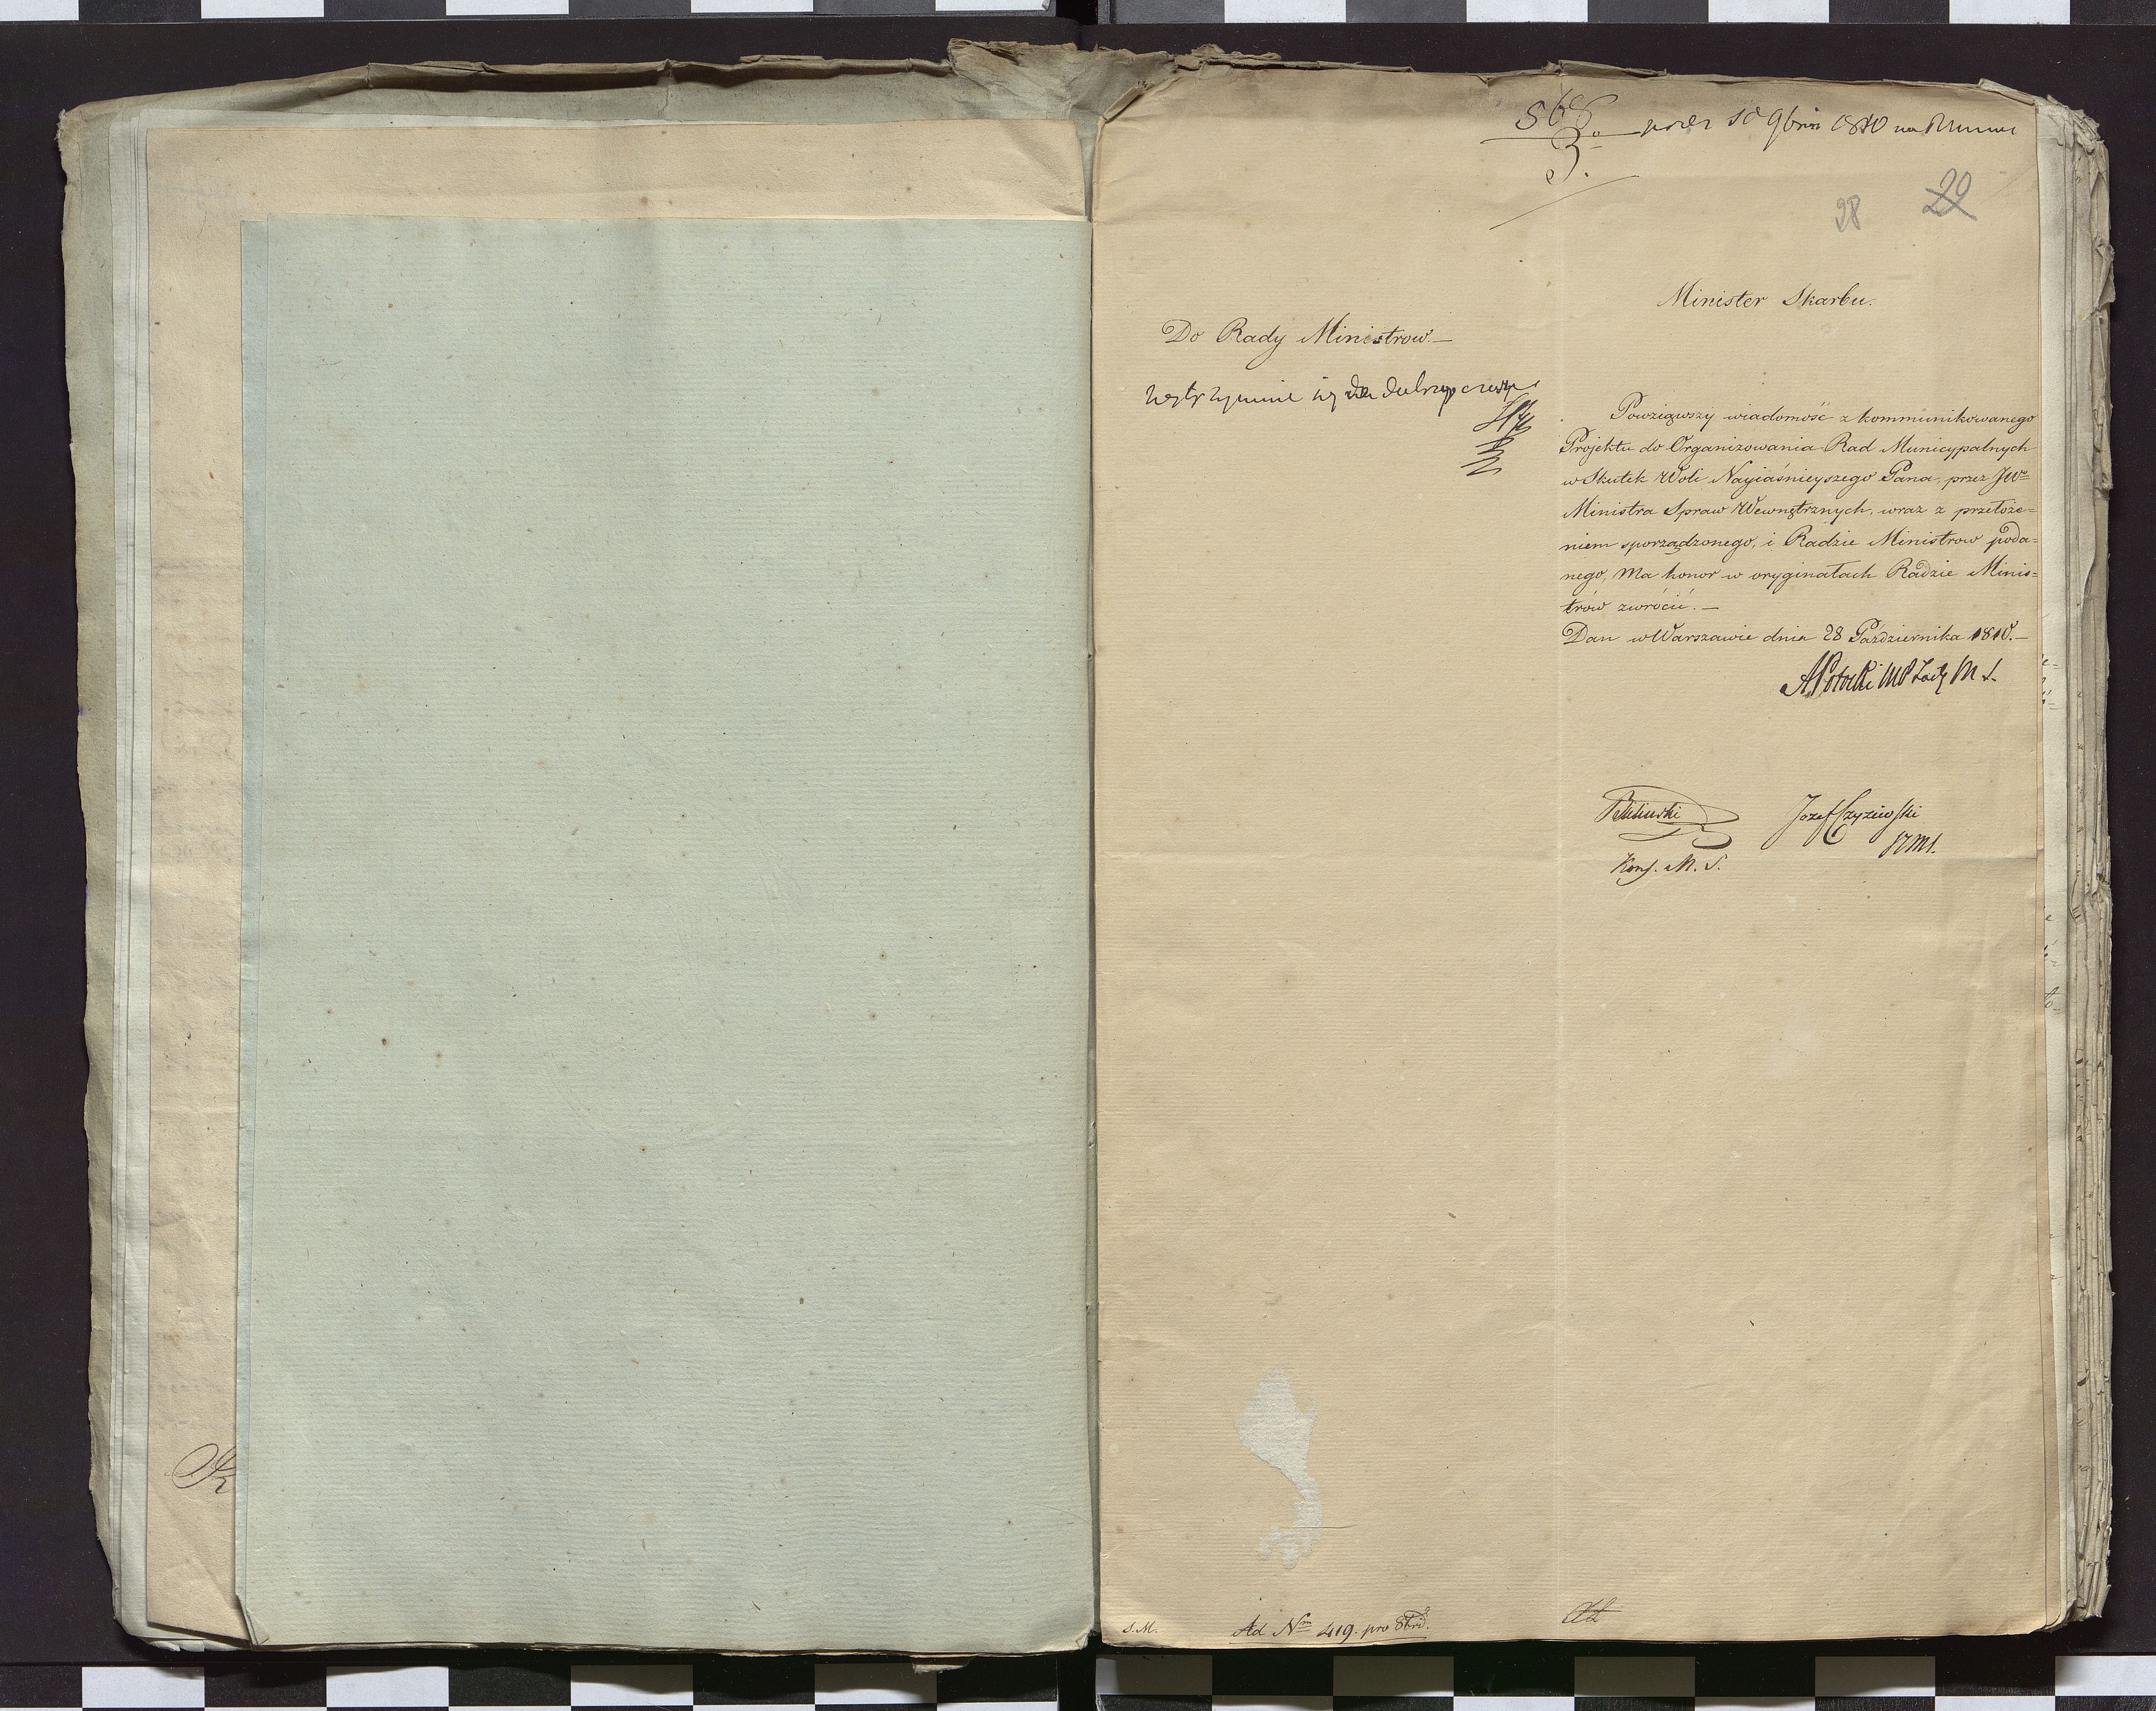 568
3.
9bris 1810 na
28
29
Minister Skarbu.
Do Rady Ministrow.—
wstrzymuie się do dalszego czasu
Powziąwszy wiadomość z kommunikowanego
Projektu do Organizowania Rad Municypalnych
w Skutek Woli Nayiaśnieyszego Pana, przez JW°
Ministra Spraw Wewnętrznych, wraz z przełoże=
niem sporządzonego, i Radzie Ministrow poda=
nego, Ma honor w oryginałach Radzie Minis=
trów zwrócić.—
Dan w Warszawie dnia 28 Października 1810.—
APotocki M S.
Józef Czyżewski
Konf. M. S.
S.M.
Ad Nm 419. pro 8bri.